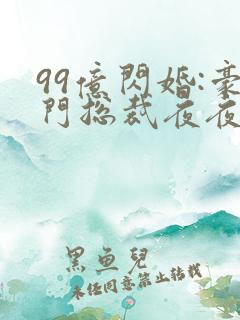 99億閃婚:豪
門總裁夜夜
黑魚兒
未經同意禁止轉載